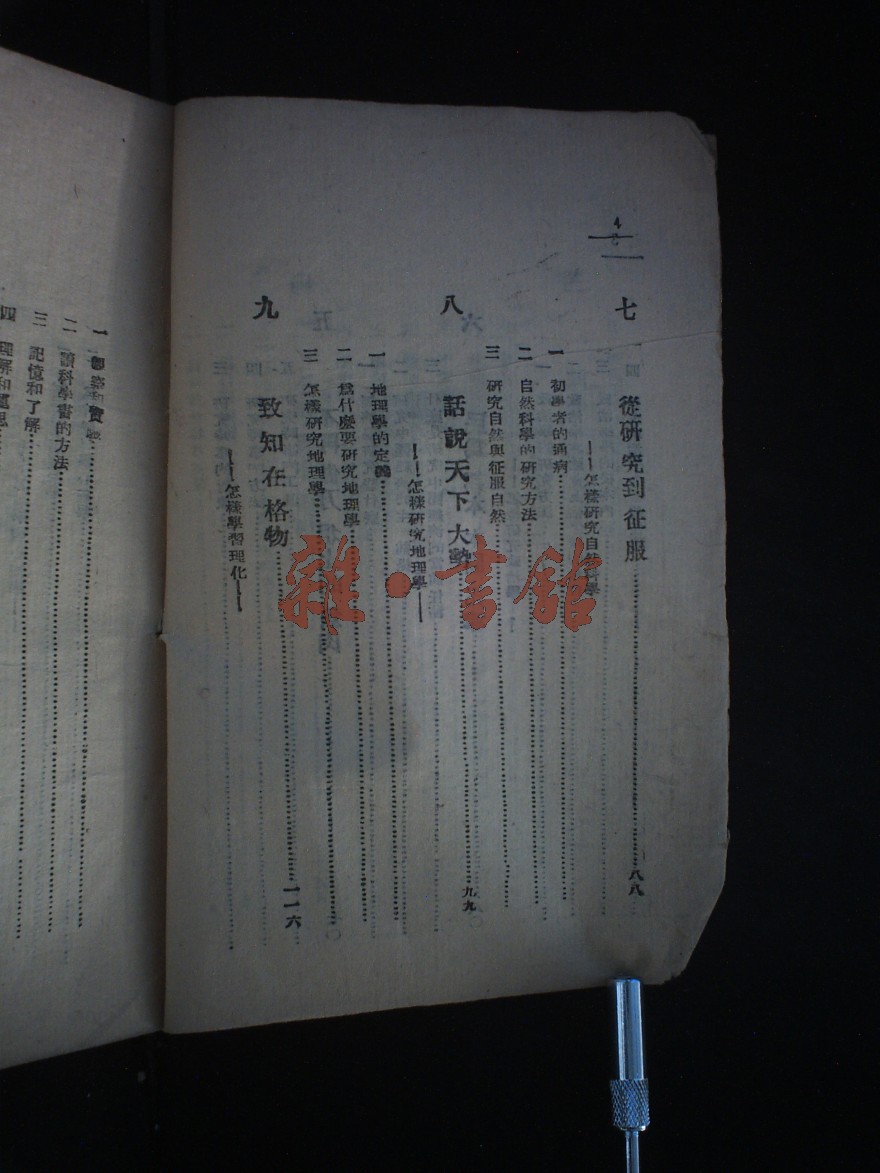 七　從研究到征服……八八
——怎樣研究自然科學
一　初學者的通病
二　自然科學的研究方法
三　研究自然與征服自然
八　話說天下大勢……九九
——怎樣研究地理學——
一　地理學的定義
二　爲什麼要研究地理學
三　怎樣研究地理學
九　致知在格物……一一六
——怎樣學習理化——
一
二　讀科學書的方法
三　記憶和了解
四　理解和
雜·書館